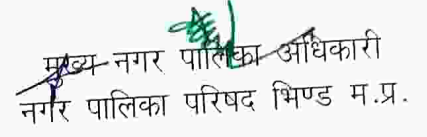 मुख्य नगर पालिका अधिकारी
नगर पालिका परिषद भिण्ड म.प्र.